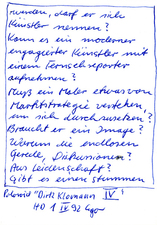 werden, darf er sich
Künstler nennen?
Kann es ein moderner
engagierter Künstler mit
einem Fernsehreporter
aufnehmen?
Muß ein Maler etwas von
Marktstrategie verstehen,
um sich durchzusetzen?
Braucht er ein Image?
Warum die endlosen
Gerede, Diskussionen?
Aus Leidenschaft?
Gibt es einen stummen
"Dirk Klomann IV"
HD 1 IV 92